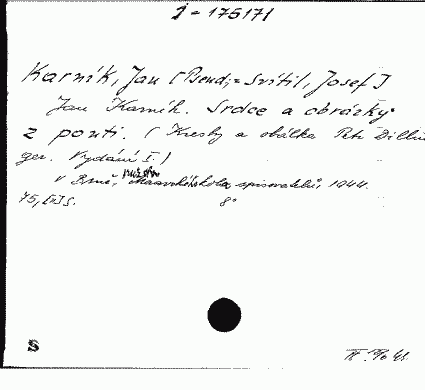 2-175171
Karník, Jan [Pseud; = Svítil, Josef]
Jan Karník. Srdce a obrázky
z poutí. (Kresby a obálka Petr Dillin
ger. Vydání I.)
V Brně, spisovatelů, 1944.
75, [2] s. 8°
S